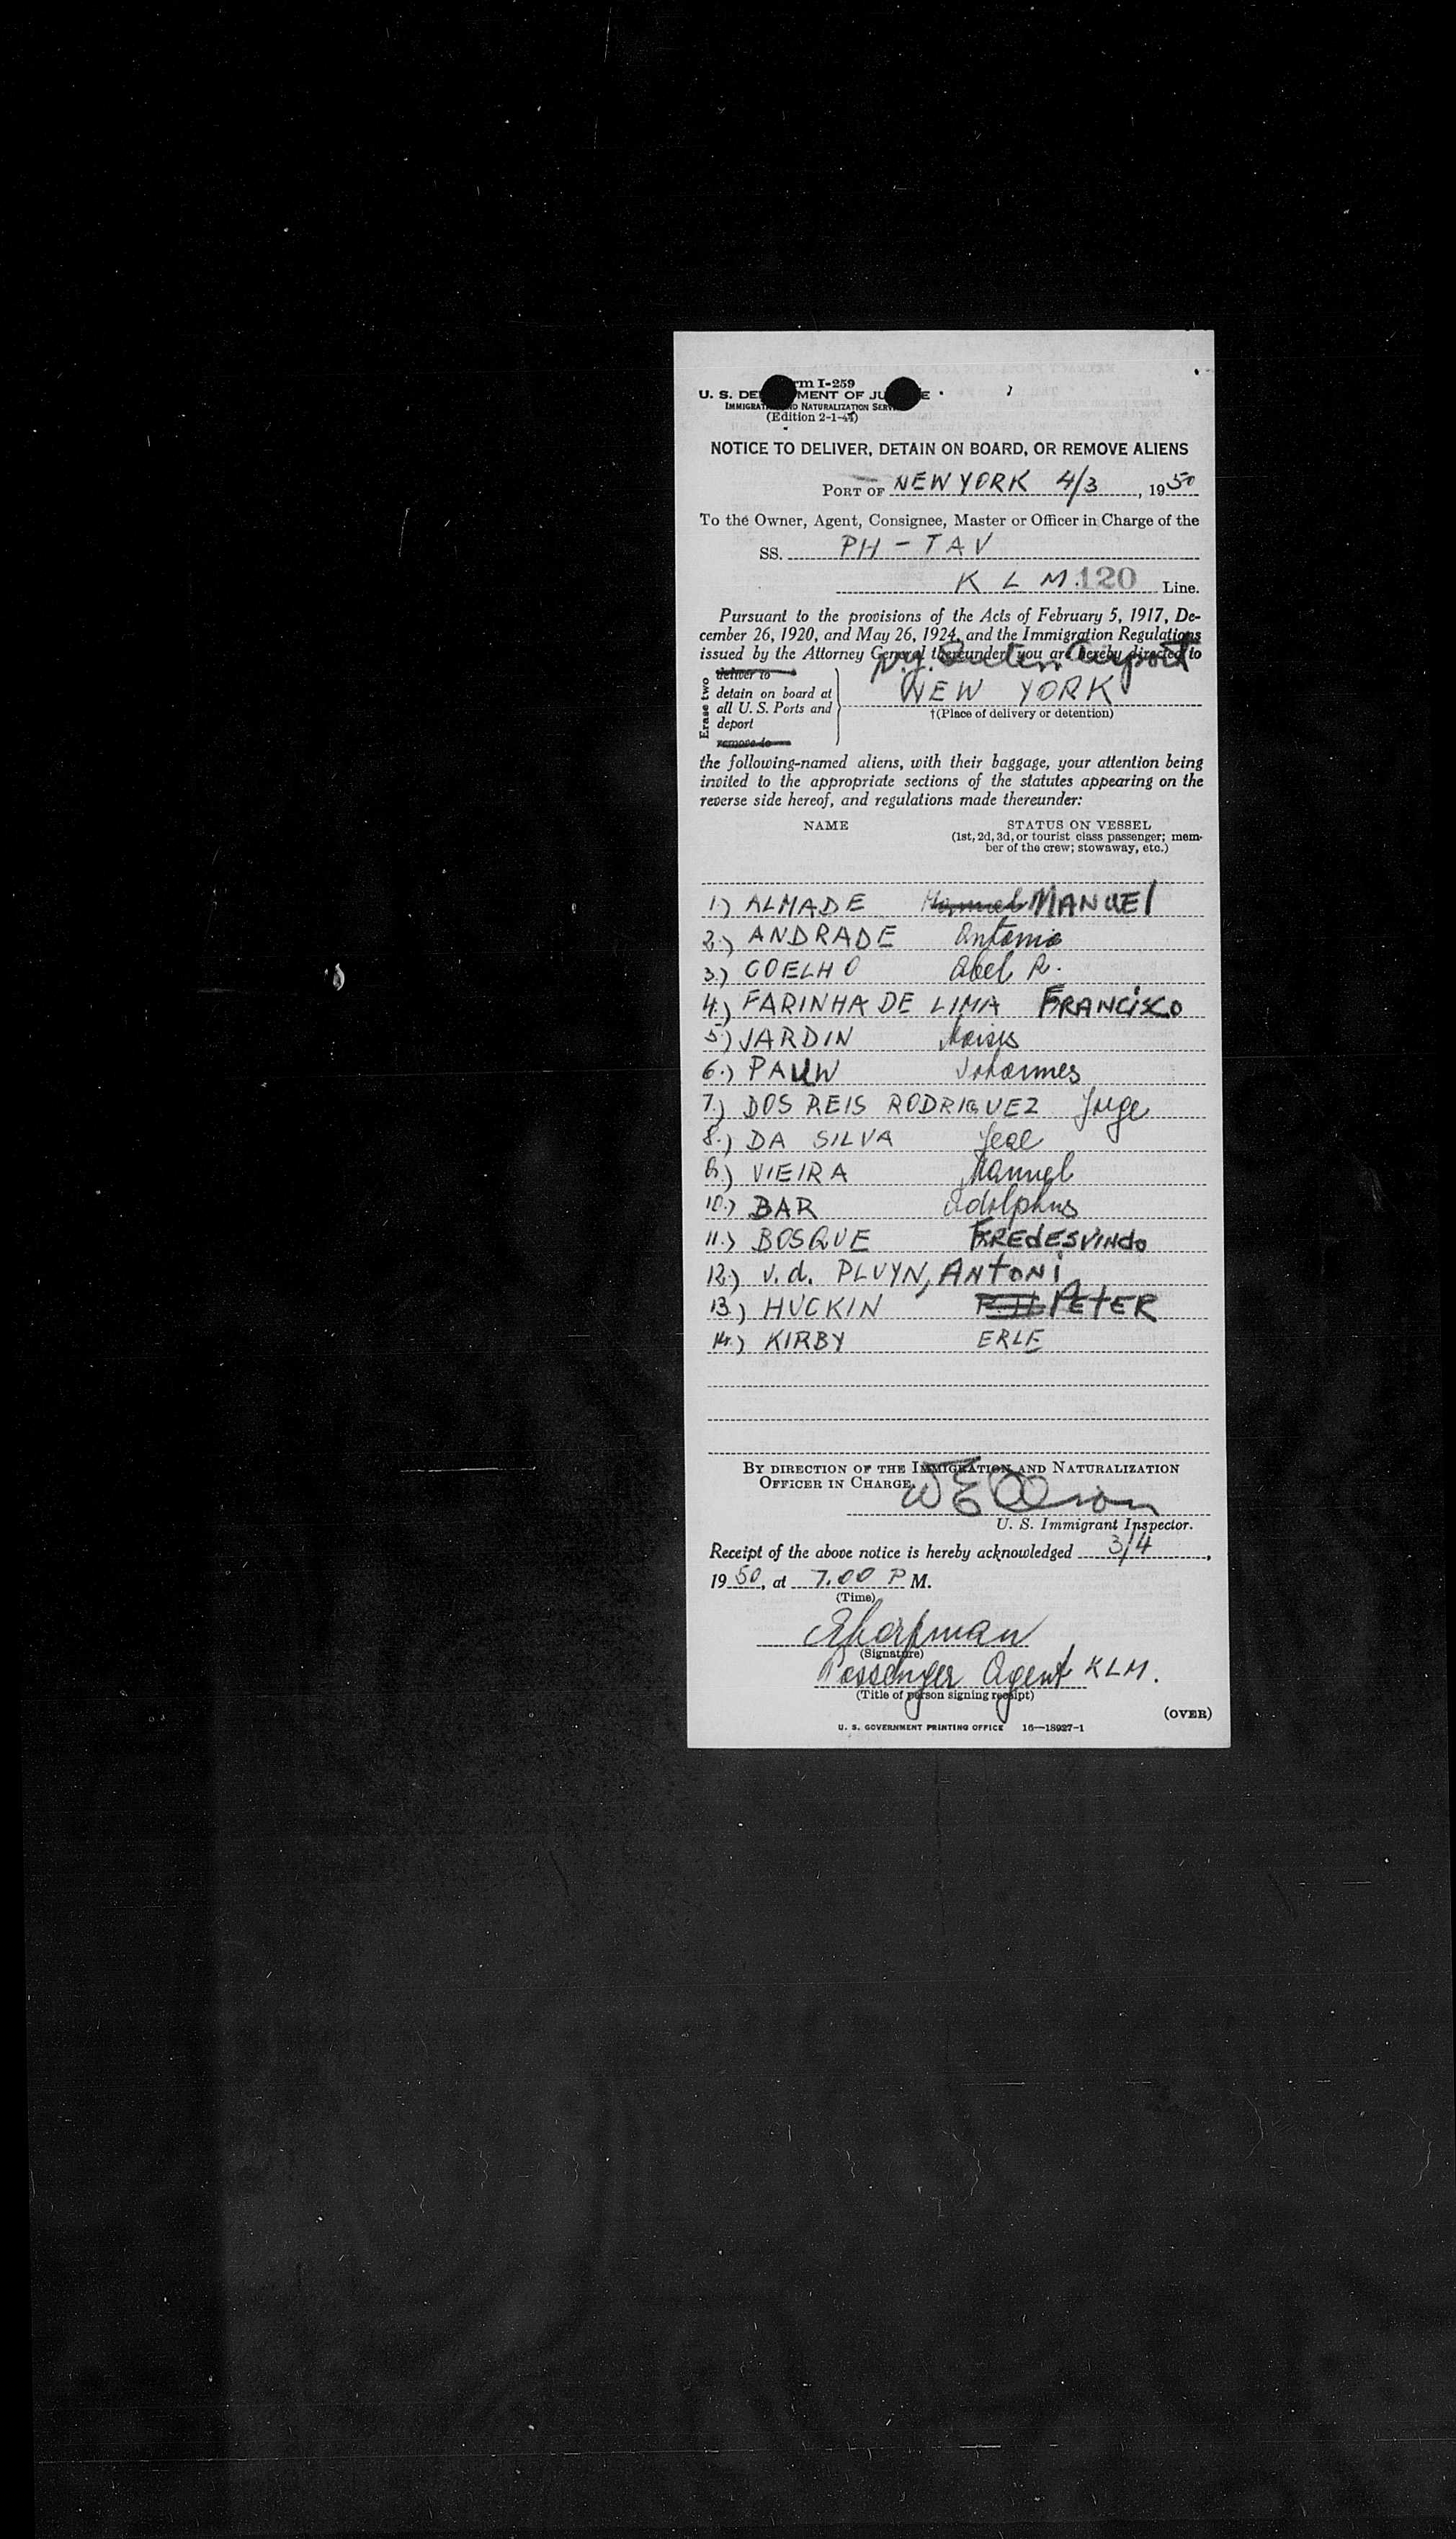 Form I-259
U. S. DEPARTMENT OF JUSTICE
IMMIGRATION AND NATURALIZATION SERVICE
(Edition 2-1-45)
NOTICE TO DELIVER, DETAIN ON BOARD, OR REMOVE ALIENS
PORT OF NEW YORK 4/3, 1950
To the Owner, Agent, Consignee, Master or Officer in Charge of the
SS. PH - TAV
K L M. 120 Line.
Pursuant to the provisions of the Acts of February 5, 1917, De-
cember 26, 1920, and May 26, 1924, and the Immigration Regulations
issued by the Attorney General thereunder, you are hereby directed to
N.Y. Airport
Erase two
deliver to
detain on board at
all U. S. Ports and
deport
remove to
NEW YORK
†(Place of delivery or detention)
the following-named aliens, with their baggage, your attention being
invited to the appropriate sections of the statutes appearing on the
reverse side hereof, and regulations made thereunder:
NAME STATUS ON VESSEL
(1st, 2d, 3d, or tourist class passenger; mem-
ber of the crew; stowaway, etc.)
1.) ALMADE Manuel MANUEl
2.) ANDRADE Antonio
3.) COELHO Abel R.
4.) FARINHA DE LIMA FRANCISCO
5.) JARDIN Moises
6.) PAUW Johannes
7.) DOS REIS RODRIGUEZ Jorge
8.) DA SILVA
9.) VIEIRA Manuel
10.) BAR Adolphus
11.) BOSQUE FREdESVINdo
12.) v.d. PLUYN, ANtONi
13.) HUCKIN PEtER
14.) KIRBY ERLE
BY DIRECTION OF THE IMMIGRATION AND NATURALIZATION
OFFICER IN CHARGE.
W E Olson
U. S. Immigrant Inspector.
Receipt of the above notice is hereby acknowledged 3/4,
1950, at 7.00 P M.
(Time)
(Signature)
Passenger Agent KLM.
(Title of person signing receipt)
(OVER)
U. S. GOVERNMENT PRINTING OFFICE 16—18927-1